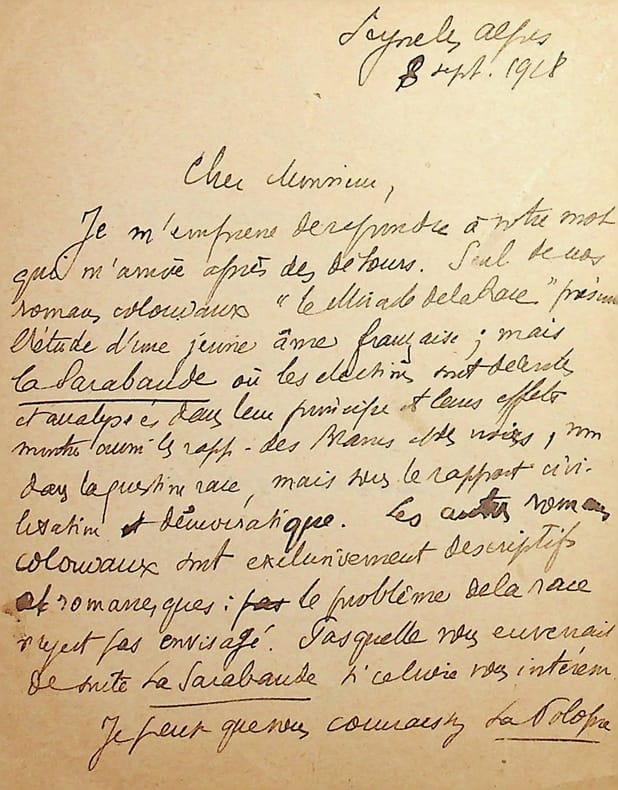 Seyne les Alpes
8 sept. 1918
Cher Monsieur,
Je m'empresse de répondre à votre mot
qui m'arrive après des détours. Seul de nos
romans coloniaux "le Miracle de la Race" présente
l'étude d'une jeune âme française ; mais
La Sarabande où les élections sont décrites
et analysées dans leur principe et leurs effets
montre aussi les rapp. des Blancs et des noirs, non
dans la question race, mais sous le rapport civi-
lisation et démocratique. Les autres romans
coloniaux sont exclusivement descriptifs
et romanesques : pas le problème de la race
n'y est pas envisagé. Fasquelle vous enverrait
de suite La Sarabande si ce livre vous intéresse
Je veux que vous connaissiez La